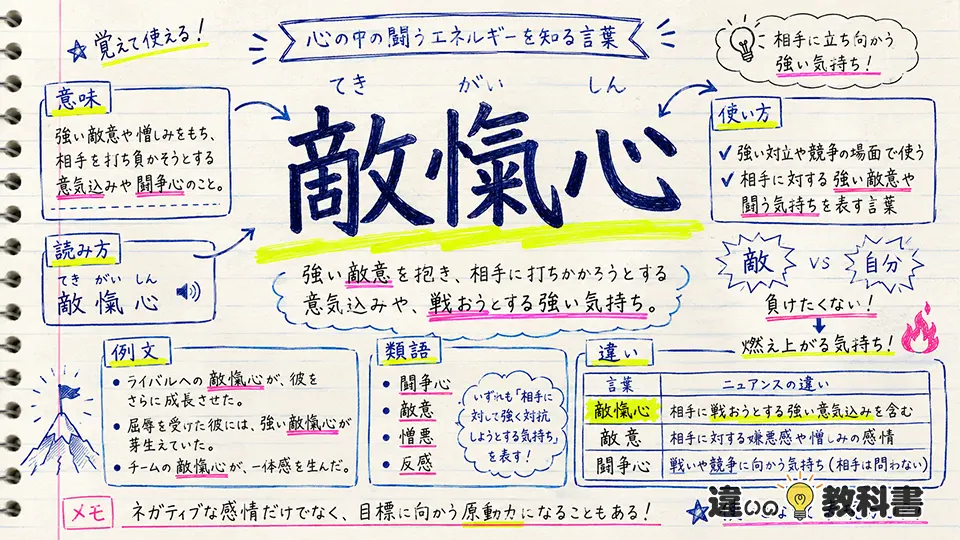 覚えて使える!
心の中の闘うエネルギーを知る言葉
相手に立ち向かう
強い気持ち!
意味
強い敵意や憎しみをもち、
相手を打ち負かそうとする
意気込みや闘争心のこと。
てき がい しん
敵愾心
使い方
✓ 強い対立や競争の場面で使う
✓ 相手に対する強い敵意や
闘う気持ちを表す言葉
読み方
てき がい しん
敵愾心
強い敵意を抱き、相手に打ちかかろうとする
意気込みや、戦おうとする強い気持ち。
敵 VS 自分
負けたくない!
燃え上がる気持ち!
例文
• ライバルへの敵愾心が、彼を
さらに成長させた。
• 屈辱を受けた彼には、強い敵愾心が
芽生えていた。
• チームの敵愾心が、一体感を生んだ。
類語
• 闘争心
• 敵意
• 憎悪
• 反感
いずれも「相手に
対して強く対抗
しようとする気持ち」
を表す!
違い
言葉 ニュアンスの違い
敵愾心 相手に戦おうとする強い意気込みを含む
敵意 相手に対する嫌悪感や憎しみの感情
闘争心 戦いや競争に向かう気持ち(相手は問わない)
メモ ネガティブな感情だけでなく、目標に向かう原動力になることもある!
違いの教科書